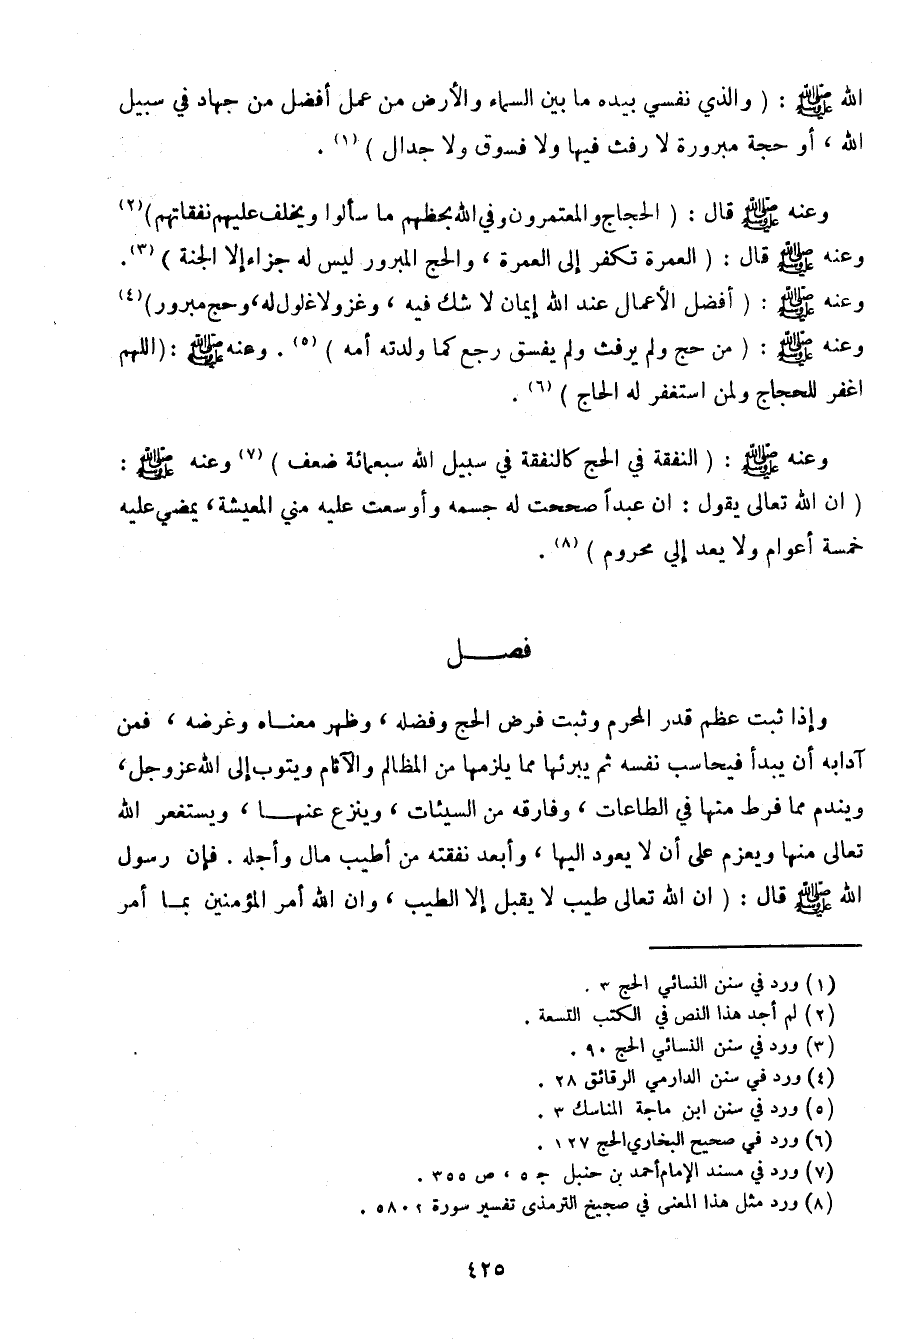 الله ﷺ : ( والذي نفسي بيده ما بين السماء والأرض من عمل أفضل من جهاد في سبيل
الله ، أو حجة مبرورة لا رفث فيها ولا فسوق ولا جدال ) (١) .
وعنه ﷺ قال : ( الحجاج والمعتمرون وفي الله بحظهم ما سألوا ويخلف عليهم نفقاتهم) (٢)
وعنه ﷺ قال : ( العمرة تكفر إلى العمرة ، والحج المبرور ليس له جزاء إلا الجنة ) (٣) .
وعنه ﷺ : ( أفضل الأعمال عند الله إيمان لا شك فيه ، وغزو لا غلول له، وحج مبرور) (٤)
وعنه ﷺ : ( من حج ولم يرفث ولم يفسق رجع كما ولدته أمه ) (٥) . وعنه ﷺ : (اللهم
اغفر للحجاج ولمن استغفر له الحاج ) (٦) .
وعنه ﷺ : ( النفقة في الحج كالنفقة في سبيل الله سبعمائة ضعف ) (٧) وعنه ﷺ :
( ان الله تعالى يقول : ان عبداً صححت له جسمه وأوسعت عليه مني المعيشة، يمضي عليه
خمسة أعوام ولا يعد إلي محروم ) (٨) .
فصــــل
وإذا ثبت عظم قدر المحرم وثبت فرض الحج وفضله ، وظهر معنــاه وغرضه ، فمن
آدابه أن يبدأ فيحاسب نفسه ثم يبرئها مما يلزمها من المظالم والآثام ويتوب إلى الله عز وجل،
ويندم مما فرط منها في الطاعات ، وفارقه من السيئات ، وينزع عنهــا ، ويستغعر الله
تعالى منها ويعزم على أن لا يعود اليها ، وأبعد نفقته من أطيب مال وأجله . فإن رسول
الله ﷺ قال : ( ان الله تعالى طيب لا يقبل إلا الطيب ، وان الله أمر المؤمنين بمــا أمر
(١) ورد في سنن النسائي الحج ٣ .
(٢) لم أجد هذا النص في الكتب التسعة .
(٣) ورد في سنن النسائي الحج ٩٠ .
(٤) ورد في سنن الدارمي الرقائق ٢٨ .
(٥) ورد في سنن ابن ماجة المناسك ٣ .
(٦) ورد في صحيح البخاري الحج ١٢٧ .
(٧) ورد في مسند الإمام أحمد بن حنبل ج ٥ ، ص ٣٥٥ .
(٨) ورد مثل هذا المعنى في صحيح الترمذى تفسير سورة
٤٢٥